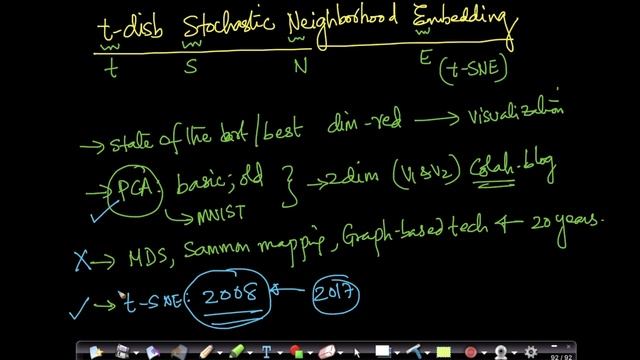 t-disb Stochastic Neighborhood Embedding
t S N E (t-SNE)
→ state of the art/best dim-red → visualization
→ PCA: basic; old } → 2dim (V1 & V2) Colah-blog
↳ MNIST
X → MDS, Sammon mapping, Graph-based tech ← 20 years.
✓ → t-SNE: 2008 ← 2017
92 / 92